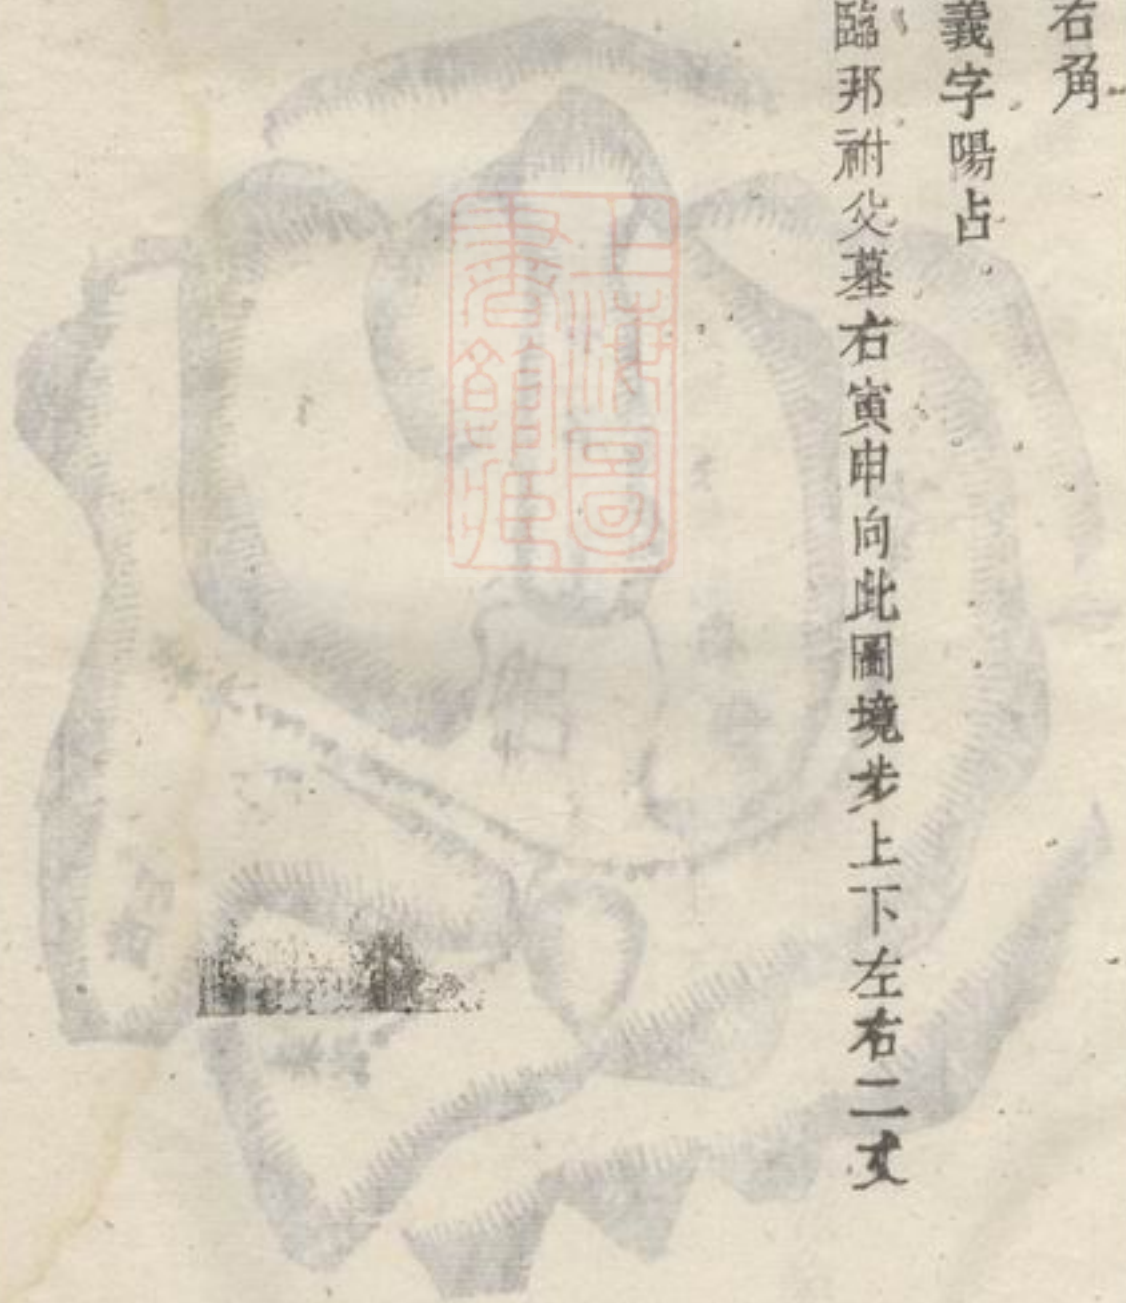 右角
義字陽占
臨邦祔父墓右寅申向此圖境步上下左右二丈
上海圖
書館藏